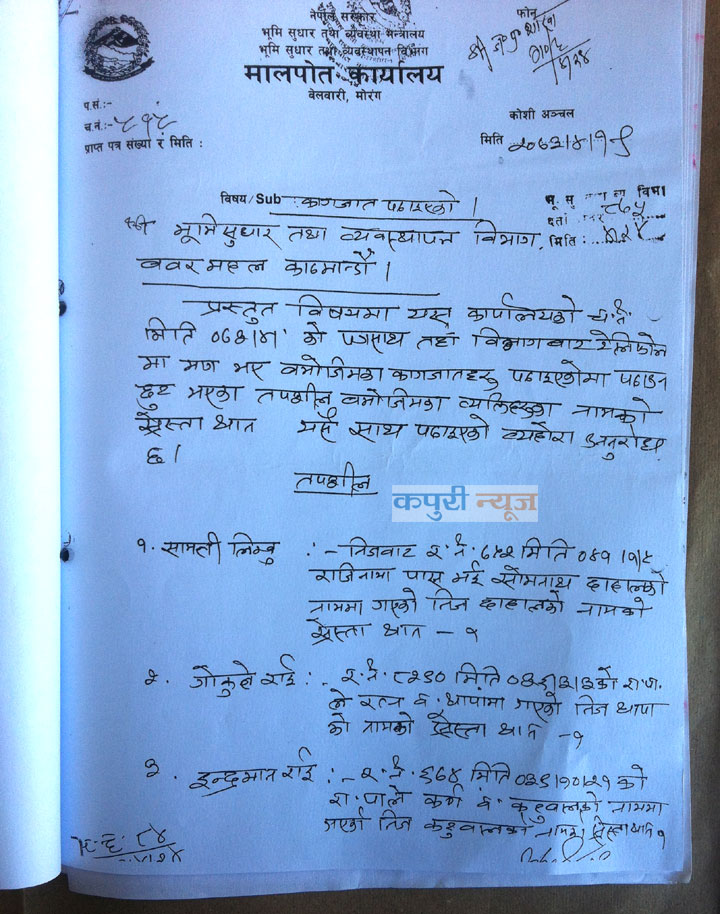 नेपाल सरकार
भूमि सुधार तथा व्यवस्था मन्त्रालय
भूमि सुधार तथा व्यवस्थापन विभाग
मालपोत कार्यालय
बेलबारी, मोरंग
फोन
प.सं:-
च.नं:- ५१५
प्राप्त पत्र संख्या र मिति :
कोशी अञ्चल
मिति २०६३।४।१९
विषय/Sub कागजात पठाइएको ।
श्री भूमिसुधार तथा व्यवस्थापन विभाग,
बबरमहल काठमाण्डौ ।
मिति :
प्रस्तुत विषयमा यस कार्यालयको च.नं.
मिति को पत्रसाथ तहाँ विभागबाट टेलिफोन
मा माग भए बमोजिमका कागजातहरु पठाइएकोमा पठाउन
छुट भएका तपशील बमोजिमका व्यक्तिहरुका नामको
श्रेस्ता थान यसै साथ पठाइएको व्यहोरा अनुरोध
छ ।
तपशील
कपुरी न्यूज
१. सामली लिम्बु :- निजबाट र.नं. ८५२ मिति
राजिनामा पास भई सोमनाथ दाहालको
नाममा गएको निज दाहालको नामको
श्रेस्ता थान - १
२. गोकुले राई :- र.नं. ८२३० मिति को रा.पा.
ले रत्न ब. थापामा गएको निज थापा
को नामको श्रेस्ता थान - १
३. इन्द्रमान राई :- र.नं. ६७४ मिति को
रा. पाले कर्ण ब. नाममा
गएको निज नामको श्रेस्ता थान १